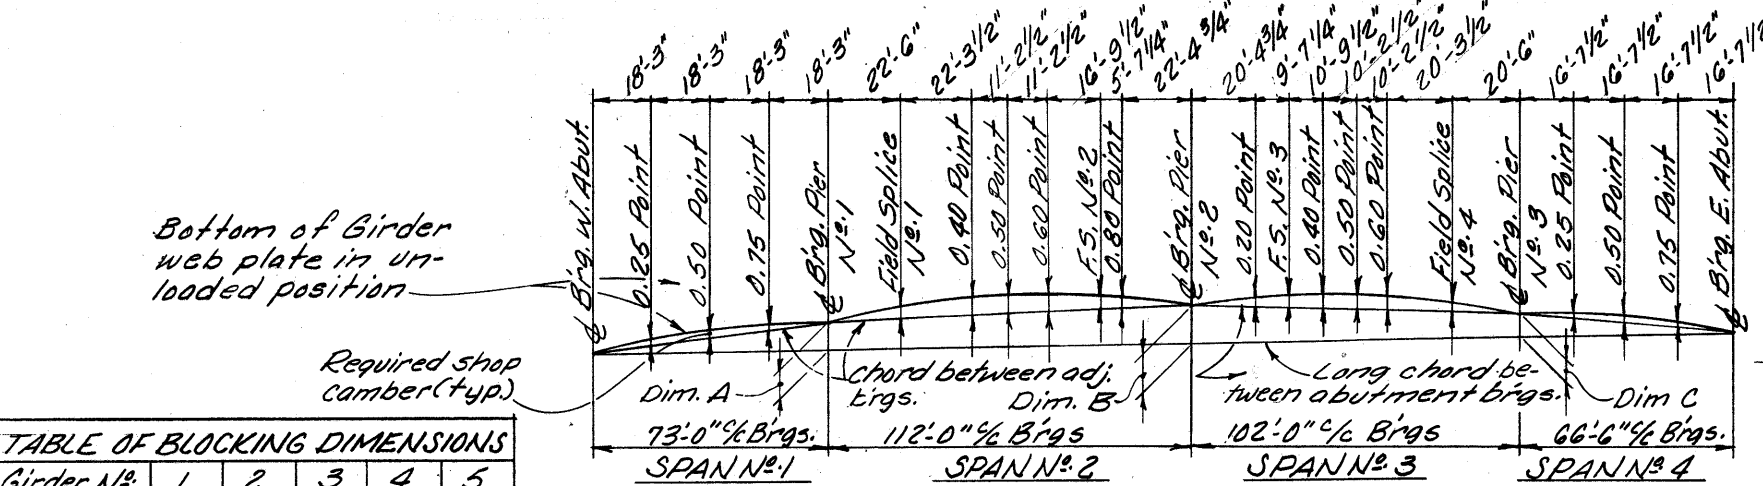 18'-3"
18'-3"
18'-3"
18'-3"
22'-6"
22'-3 1/2"
11'-2 1/2"
11'-2 1/2"
16'-9 1/2"
5'-7 1/4"
22'-4 3/4"
20'-4 3/4"
9'-7 1/4"
10'-9 1/2"
10'-2 1/2"
10'-2 1/2"
20'-3 1/2"
20'-6"
16'-7 1/2"
16'-7 1/2"
16'-7 1/2"
16'-7 1/2"
℄ Brg. W. Abut.
0.25 Point
0.50 Point
0.75 Point
℄ Brg. Pier
Nº 1
Field Splice
Nº 1
0.40 Point
0.50 Point
0.60 Point
F.S. Nº 2
0.80 Point
℄ Brg. Pier
Nº 2
0.20 Point
F.S. Nº 3
0.40 Point
0.50 Point
0.60 Point
Field Splice
Nº 4
℄ Brg. Pier
Nº 3
0.25 Point
0.50 Point
0.75 Point
℄ Brg. E. Abut.
Bottom of Girder
web plate in un-
loaded position
Required shop
camber (typ.)
Dim. A
Chord between adj.
brgs.
Dim. B
Long chord be-
tween abutment brgs.
Dim C
73'-0" c/c Brgs.
112'-0" c/c Brgs
102'-0" c/c Brgs
66'-6" c/c Brgs.
SPAN Nº 1
SPAN Nº 2
SPAN Nº 3
SPAN Nº 4
TABLE OF BLOCKING DIMENSIONS
Girder Nº 1 2 3 4 5